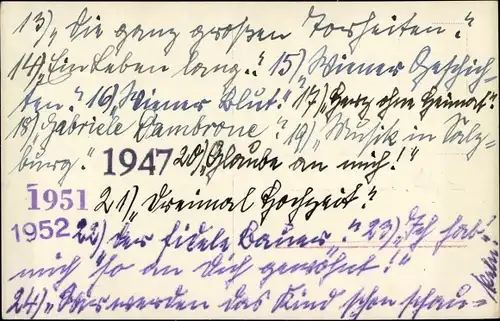 13) „Die ganz großen Torheiten."
14) „Ein Leben lang." 15) „Wiener Geschich-
ten." 16) „Wiener Blut." 17) „Herz ohne Heimat."
18) „Gabriele Dambrone" 19) „Musik in Salz-
burg." 1947 20) „Glaube an mich!"
1951 21) „Dreimal Hochzeit."
1952 22) „Der fidele Bauer." 23) „Ich hab'
mich so an Dich gewöhnt!"
24) „Wir werden das Kind schon schau-
keln"